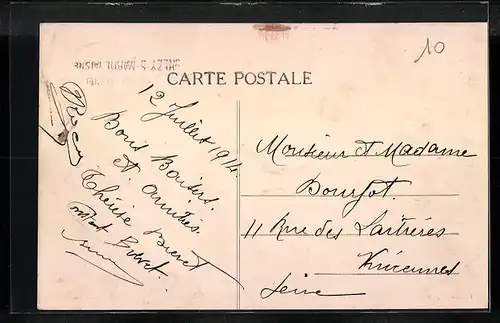 10
CARTE POSTALE
12 Juillet 1914.
Bons Baisers
et amitiés.
Thérèse
Monsieur et Madame
Boursot.
11 Rue des Laitières
Vincennes
Seine